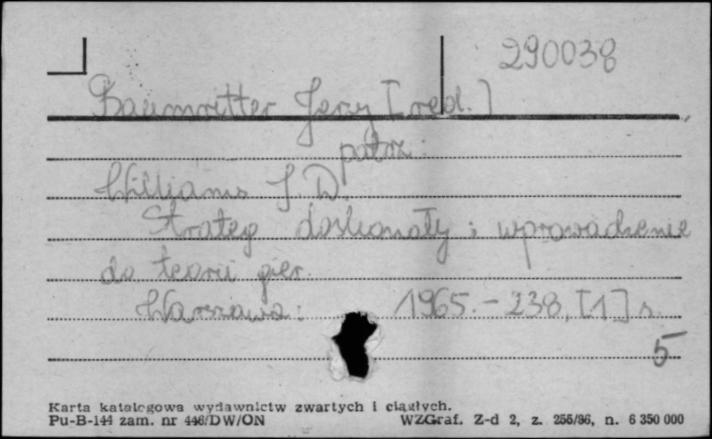 290038
Baumritter Jerzy [red.]
patrz:
Williams J. D.
Strateg doskonały : wprowadzenie
do teorii gier.
Warszawa: 1965. - 238, [1] s.
5
Karta katalogowa wydawnictw zwartych i ciągłych.
Pu-B-144 zam. nr 446/DW/ON WZGraf. Z-d 2, z. 255/86, n. 6 350 000